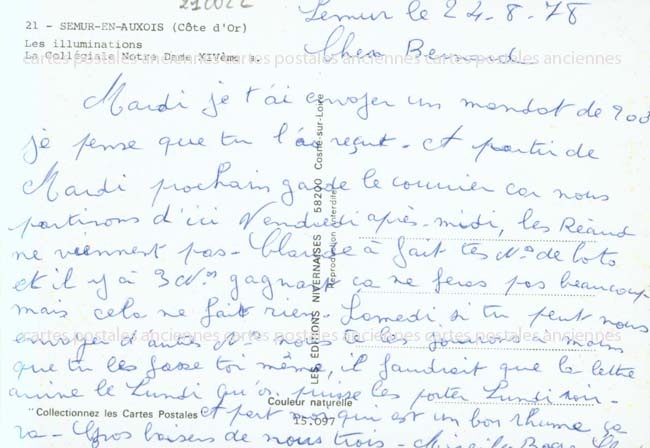 210822
21 - SEMUR-EN-AUXOIS (Côte d'Or)
Les illuminations
La Collégiale Notre Dame XIVème s.
Semur le 24-8-78
Cher Bernard
Mardi je t'ai envoyer un mandat de 900
je pense que tu l'as reçut - A partir de
Mardi prochain garde le courrier car nous
partirons d'ici Vendredi après-midi, les Réaud
ne viennent pas - Claude à fait tes Nos de loto
et il y à 3 Nos gagnant ça ne feras pas beaucoup
mais cela ne fait rien - Samedi si tu peut nous
envoyer tes Nos nous te les jourons à moins
que tu les fasse toi même, il faudrait que la lettre
arrive le Lundi qu'on puisse les porter Lundi soir -
et part moi qui est un bon rhume ça
va - Gros baisers de nous trois -
LES ÉDITIONS NIVERNAISES 58200 Cosne-sur-Loire
Reproduction interdite
Couleur naturelle
"Collectionnez les Cartes Postales
15.097
cartes postales anciennes cartes postales anciennes cartes postales anciennes
cartes postales anciennes cartes postales anciennes cartes postales anciennes